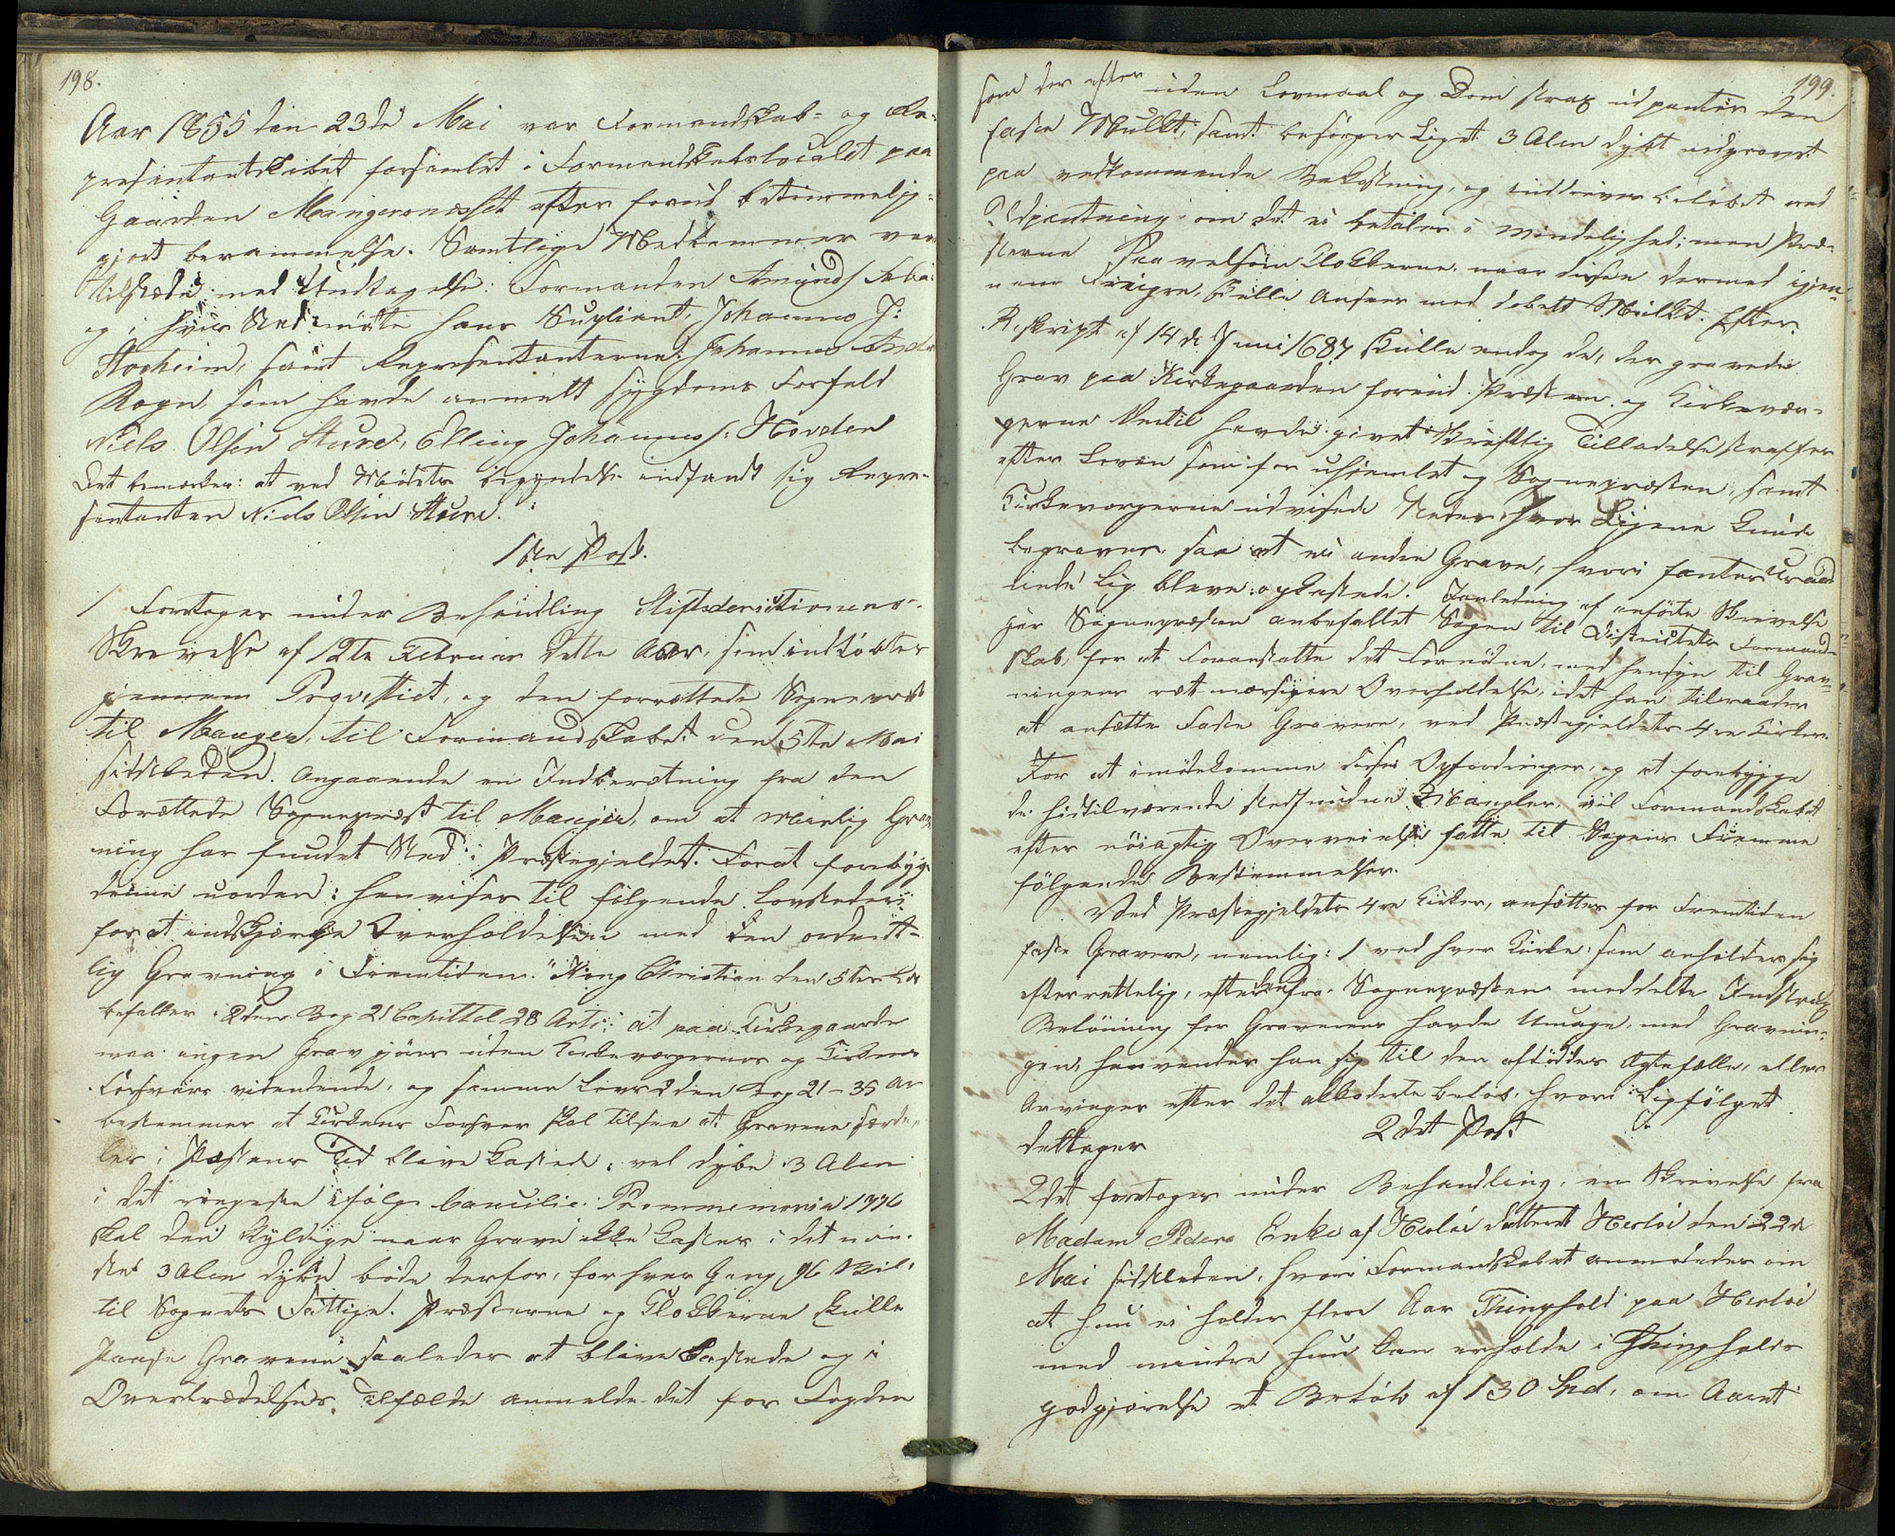 198.
Aar 1855 den 23de Mai var Formandskab- og Re-
presentantskabet forsamlet i Formandskabslocalet paa
Gaarden Mangersnæsset efter forud betimmelig-
gjort berammelse. Samtlige Medlemmer var
tilstæde med Undtagelse: Formanden Amund
og i hans Sted mødte hans Supliant, Johannes J:
samt Representanterne: Johannes
Rogn, som havde anmelt sygdoms Forfald
Niels Olsen Sture, Elling Johannes: Hovden
Det bemærkes: at ved Mødets begyndelse indfandt sig Repre-
sentanten Niels Olsen Sture.
1ste Post.
1 Foretages under Behandling Stiftsderictionens
Skrivelse af 12te Februar dette Aar, som indløbter
gjennem Provstiet, og den forrettede Sognepræst
til Manger, til Formandskabet den 5te Mai
sidstleden. Angaaende en Indberetning fra den
Forrettede Sognepræst til Manger om at Grav-
ning har fundet Sted i Præstegjeldet. Forat forebygge
denne uorden: henvises til følgende Lovsteder:
for at indskjærpe Overholdelsen med den ordent-
lig Gravning i Fremtiden. "Kong Christian den 5tes Lov
befaller i 2den Bog 21 Capittel 28 Arti: at paa Kirkegaarde
maa ingen Grav gjøres uden Kirkeværgernes og Kirkens
Forsvars vidende, og samme Lovs 2den Bog 21-35 Ar
bestemmer at Kirkens Forsvar skal tilsee at Gravene særde-
les i Pæstens Tid blive kastede, vel dybe 3 Alen
i det ringeste ifølge Cancelie: Promemoria 1776
skal den skyldige naar Grave ikke kastes i det min-
ste 3 Alen dybe bøde derfor, for hver Gang 96 Skil:
til Sognets Fattige. Præsterne og Klokkerne skulle
paase Gravene saaledes at blive kastede og i
Overtrædelses Tilfælde anmelde det for Fogden
199.
som der efter uden Lovmaal og Dom strax udpanter den
faste Mulkt, samt besørger Liget 3 Alen dybt nedgravet
paa vedkommende Bekostning, og inddriver Beløbet ved
Udpantning om det ei betales i mindelighed; men Præ-
sterne saavelsom Klokkerne, naar disse dermed igjen-
nem Fingre, skulle ansees med dobelt Mulkt. Efter
Reskript af 14de Juni 1687 skulle endog de, der gravede
Grav paa Kirkegaarden forend Præsten og Kirkevær-
gerne dertil havde givet skriftlig Tilladelse straffes
efter Loven som for uhjemlet og Sognepræsten, samt
Kirkeværgerne udviste Steder hvor Ligene kunde
begraves, saa at ei andre Grave, hvori fantes uraad-
nede Lig bleve opkastede. I anledning af anførte Skrivelse
har Sognepræsten anbefallet Sagen til Districtets Formand-
skab, for at foranstalte det Fornødne, med hensyn til Grav-
ningens retmæssigere Overholdelse, idet han tilraader
at ansætte faste Gravere, ved Præstegjeldets 4re Kirker.
For at imødekomme disse Opfordringer og at forebygge
de hidtilværende stedfundne Mangler, vil Formandskabet
efter nøiagtig Overveielse fatte til Sagens Fremme
følgende Bestemmelser.
Ved Præstegjeldets 4re Kirker, ansættes for Fremtiden
faste Gravere, nemlig: 1 ved hver Kirke som anholder sig
efterrettelig, efter den fra Sognepræsten meddelte Instrux
Belønning for Graverens havde Umage, med Gravnin-
gen, henvender han sig til den afdødes Ægtefælle, eller
Arvinger efter det akkoderte beløb, hvori Ligfølget
deltager
2det Post
2det foretages under Behandling, en Skrivelse fra
Madam Peders Enke af Herløe datteret Herløe den 22de
Mai sidstleden, hvori Formandskabet anmodedes om
at hun ei holder flere Aar Thinghold paa Herløe
med mindre hun kan erholde i Thingholds
godgjørelse et Beløb af 130 Spd, om Aaret